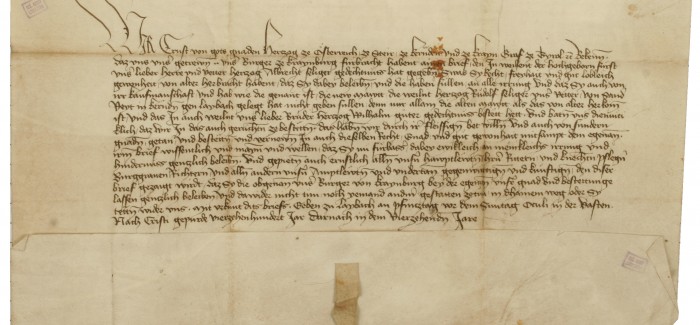 Wir Ernst von gots gnaden Herczog ze Osterreich ze Steir ze Kernden und ze Krain Graf ze Tyrol etc. Bekennen
daz uns unser getrewn unsr Burger ze Craynburg furbracht habent wie in weilent der hochgeborn furst
uns lieber herre und vetter herczog Albrecht seliger gedechtnuss hat gegeben etwas Sy Recht freihait und gut loblich
gewonhait von alter herbracht haben daz Sy dabey beleiben und die haben sullen an alle irrung und daz Sy auch von
irr kaufmanschaft und hab wie die genant ist die new mawtt die weilnt herczog Rudolf seliger uns vetter von Sand
Veyt in kernden gen Laybach gelegt hat nicht geben sullen denn nur allain die alten mawtt als das von alter herkomen
ist und das In auch weilnt uns lieber bruder herczog Wilhalm guter gedechtnuss bestett hat Und batn uns diemut-
klich daz wir In das auch geruchten ze bestetten das haben wir durch ir fleissign bet willen und auch von sundern
gnaden getan und bestetten und vernewen In auch dieselben Recht gnad und gut gewonhait mitsampt dem egenan-
brief wissentlich und maynen und wellen daz Sy nu furbass dabey ewiklich an meniklichs irrung und
hindernuss genczlich beleiben Und gepieten auch ernstlich allen unsern hawptlewten herren Rittern und knechten pflegern
Burggrauen Richtern und allen andern unsern Amptlewten und undertan gegenwurtigen und kunftigen den diser
brief geczaigt wirdt daz Sy die obgenan uns Burger von Craynburg bey der egenan unser gnad und bestettnung
lassen genczlich beleiben und dawider nicht tun noch yemand andern gestatten ze tun in dhainem weg oder Sy
teten wider uns Mit urkunt dits briefs Geben ze Laybach an phincztag vor dem Sunntag Oculi in der Vasten
Nach Cristi gepurde vierczehenhundert Jar darnach in dem vierzehenden Jare